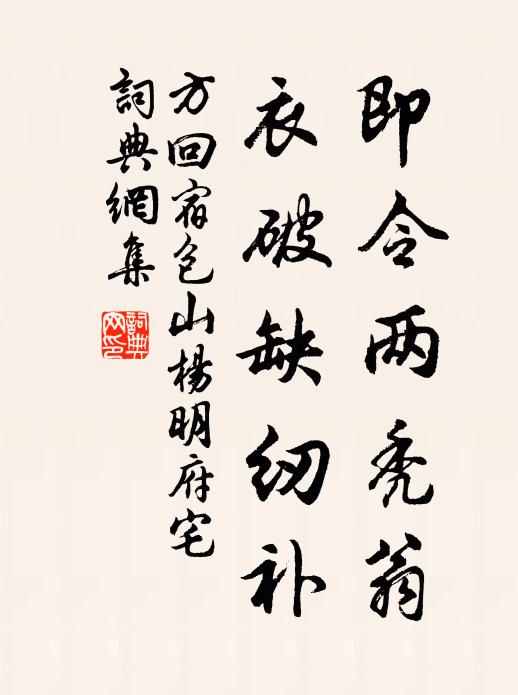 即令两秃翁
衣破缺纫补
方回宿包山楊明府宅
詞典網集
詞典
网印